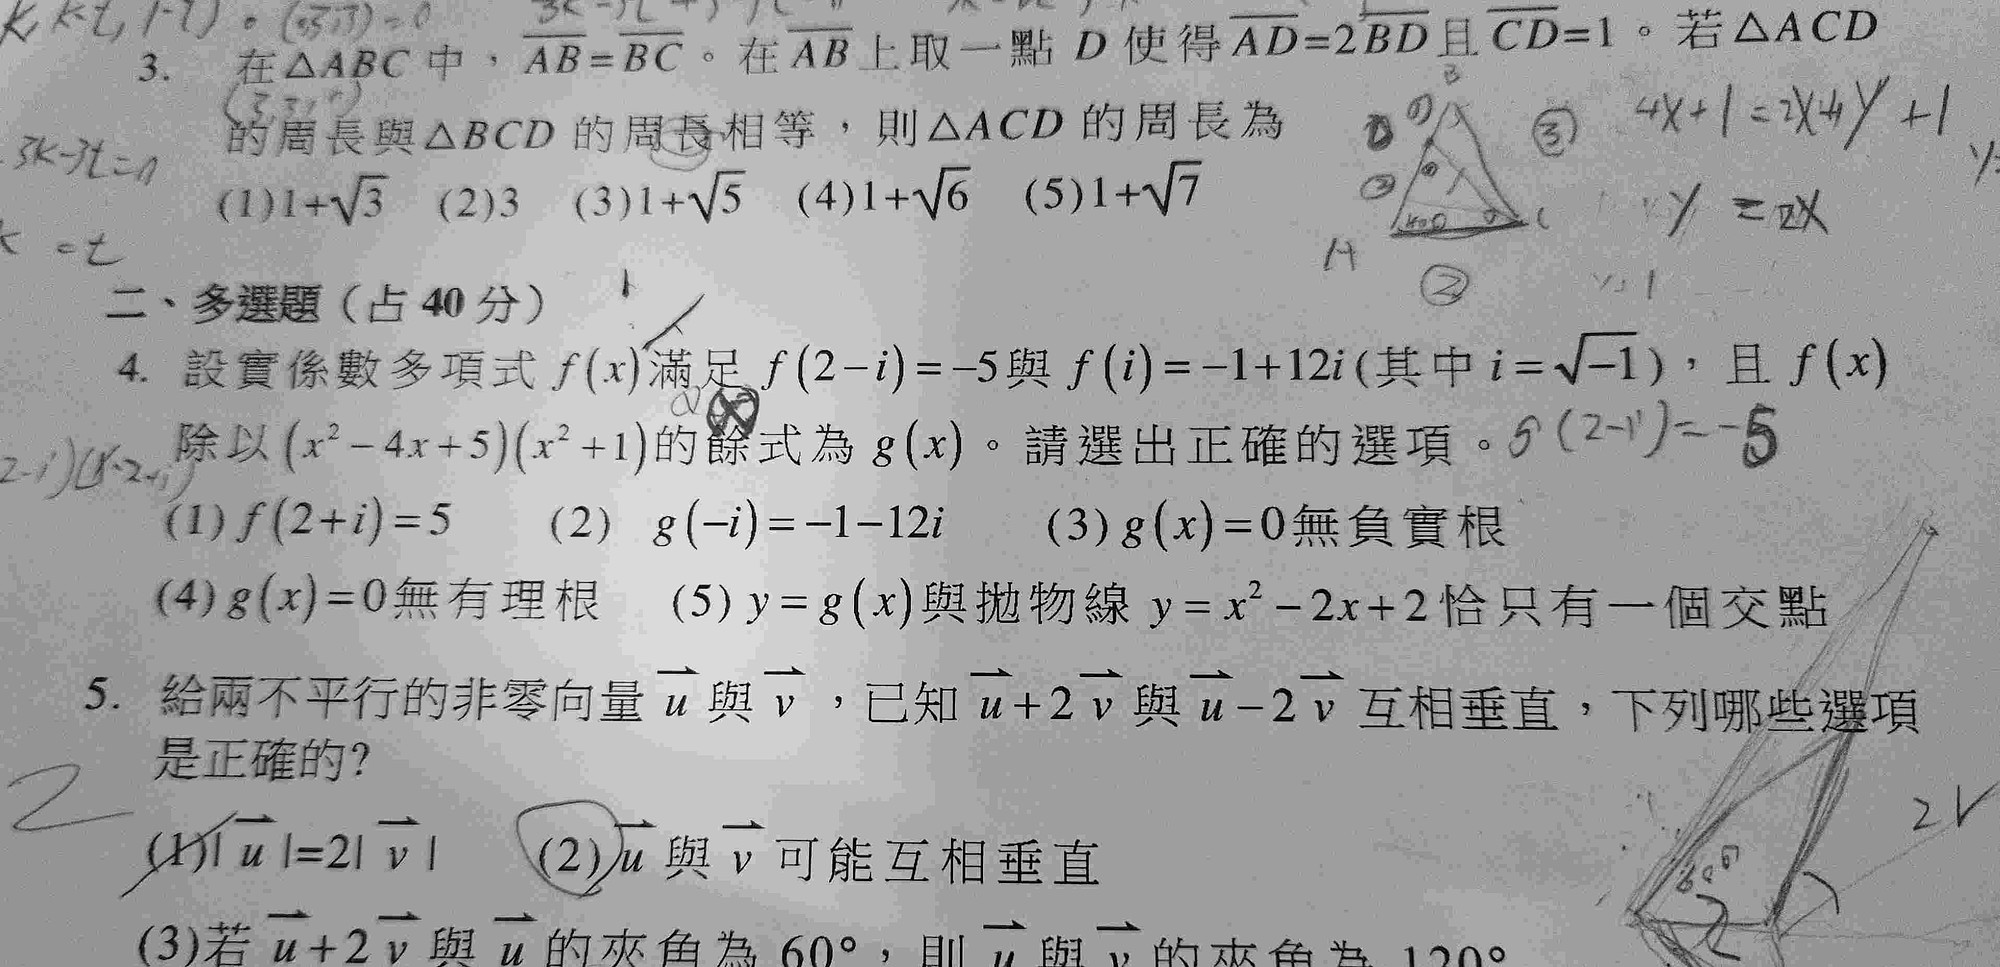 k, k-t, 1-t)。
3. 在△ABC 中，AB=BC。在 AB 上取一點 D 使得 AD=2BD 且 CD=1。若△ACD
的周長與△BCD 的周長相等，則△ACD 的周長為
(1)1+√3 (2)3 (3)1+√5 (4)1+√6 (5)1+√7
3k-3t=0
=t
B
D
A
C
③
②
4x+1=2x+y+1
y=2x
二、多選題（占 40 分）
4. 設實係數多項式 f(x)滿足 f(2-i)=-5與 f(i)=-1+12i(其中 i=√-1)，且 f(x)
除以(x²-4x+5)(x²+1)的餘式為 g(x)。請選出正確的選項。
5(2-i)=-5
(1) f(2+i)=5 (2) g(-i)=-1-12i (3) g(x)=0無負實根
(4) g(x)=0無有理根 (5) y=g(x)與拋物線 y=x²-2x+2恰只有一個交點
5. 給兩不平行的非零向量 u 與 v，已知 u+2v 與 u-2v 互相垂直，下列哪些選項
是正確的?
2
(1)|u|=2|v| (2)u 與 v 可能互相垂直
(3)若 u+2v 與 u 的夾角為 60°，則 u 與 v 的夾角為 120°
2V
60°